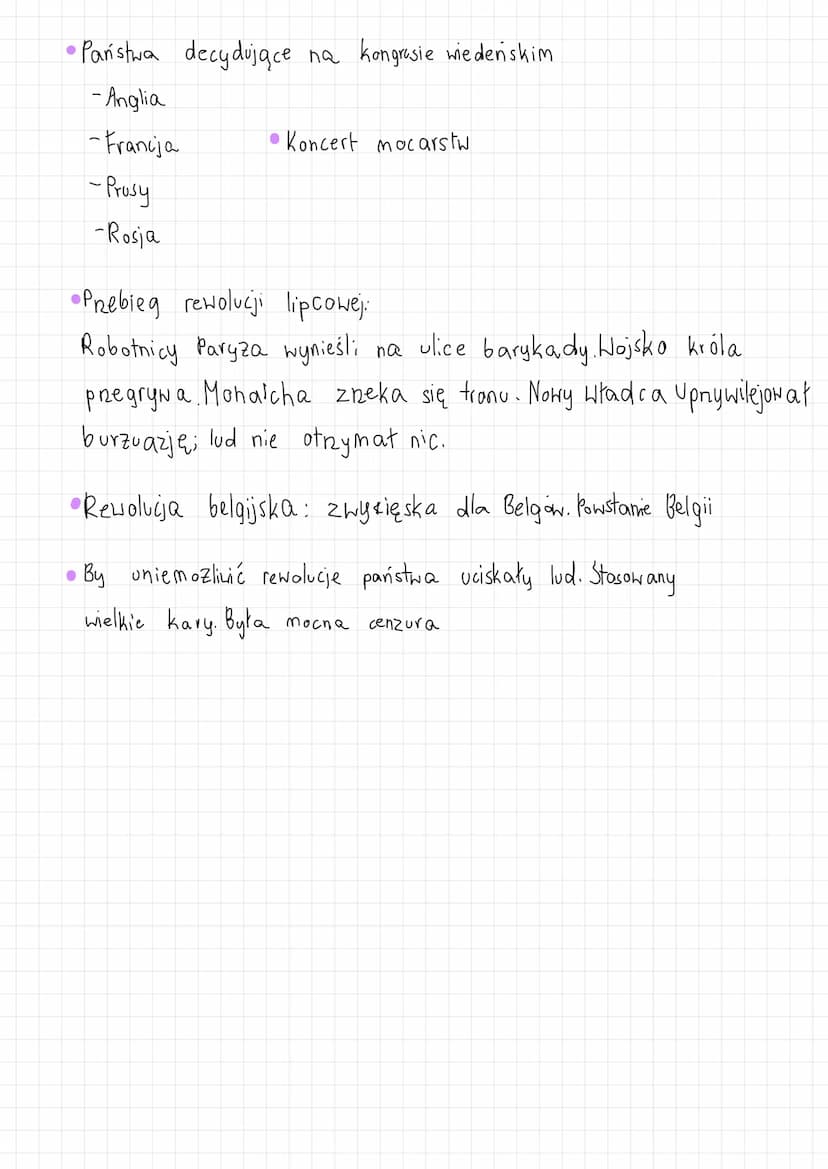 • Państwa decydujące na kongresie wiedeńskim
- Anglia
- Francja
• Koncert mocarstw
- Prusy
- Rosja
• Przebieg rewolucji lipcowej:
Robotnicy Paryża wynieśli na ulice barykady. Wojsko króla
przegrywa. Monarcha zrzeka się tronu. Nowy władca uprzywilejował
burżuazję; lud nie otrzymał nic.
• Rewolucja belgijska: zwycięska dla Belgów. Powstanie Belgii
• By uniemożliwić rewolucje państwa uciskały lud. Stosowany
wielkie kary. Była mocna cenzura